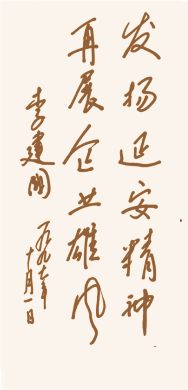 发扬延安精神
再展企业雄风
李建国
一九九七年
十月一日